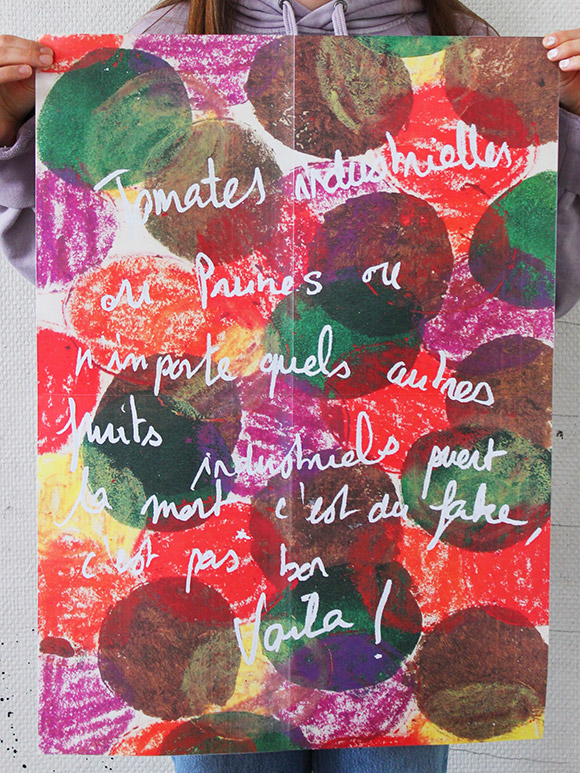 Tomates industrielles
ou Prunes ou
n'importe quels autres
fruits industriels puent
la mort c'est du fake,
c'est pas bon
Voila !